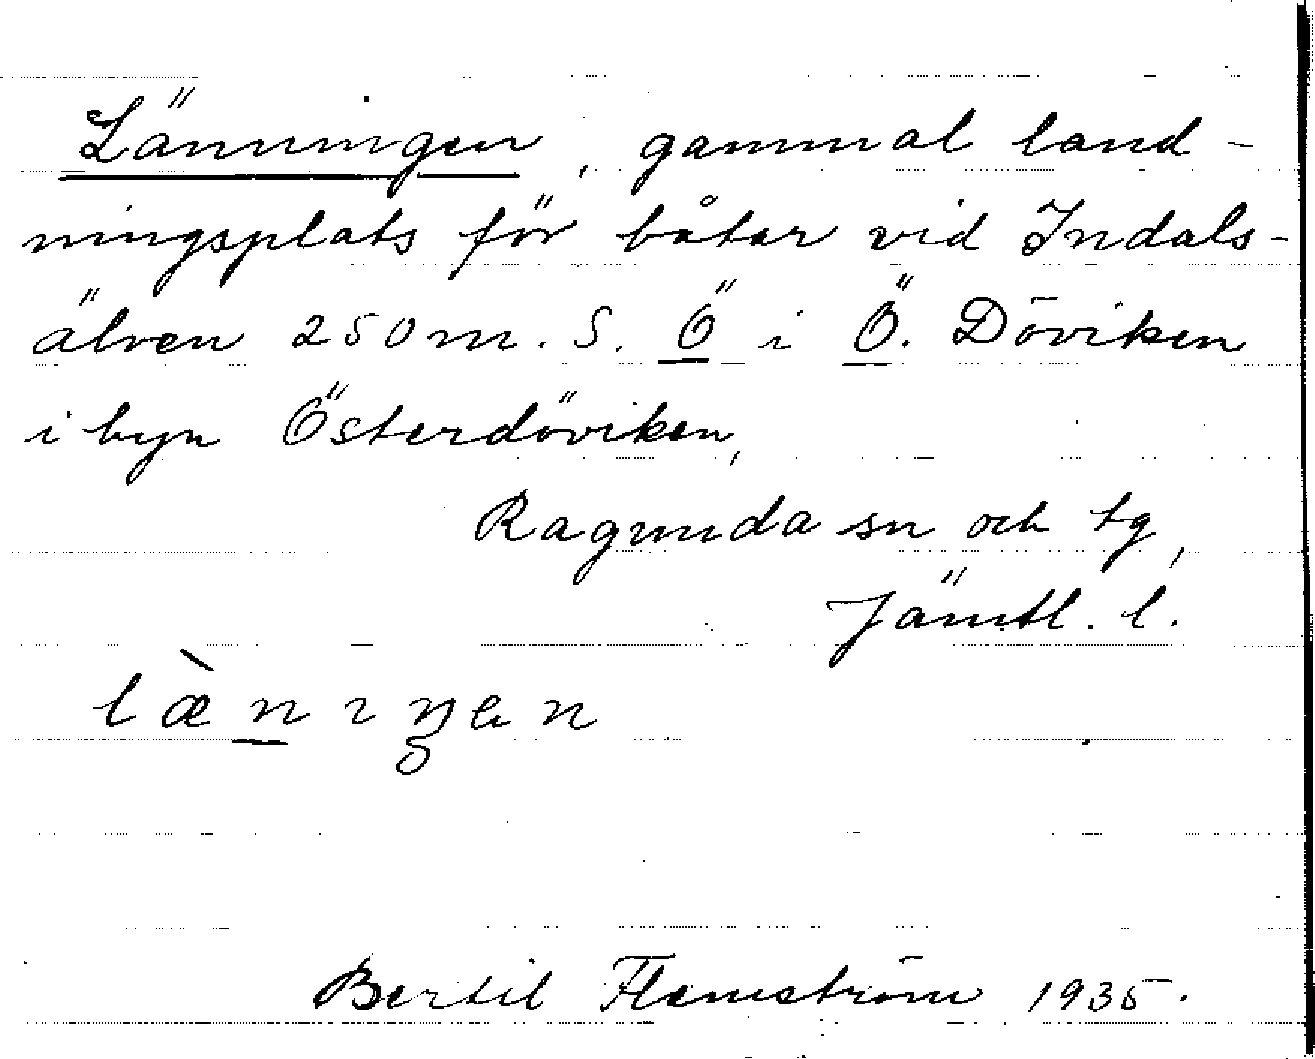 Länningen, gammal land-
ningsplats för båtar vid Indals-
älven 250 m. S. Ö i Ö. Döviken
i byn Österdöviken,
Ragunda sn och tg,
Jämtl. l.
læ̀nıŋen
Bertil Flemström 1935.